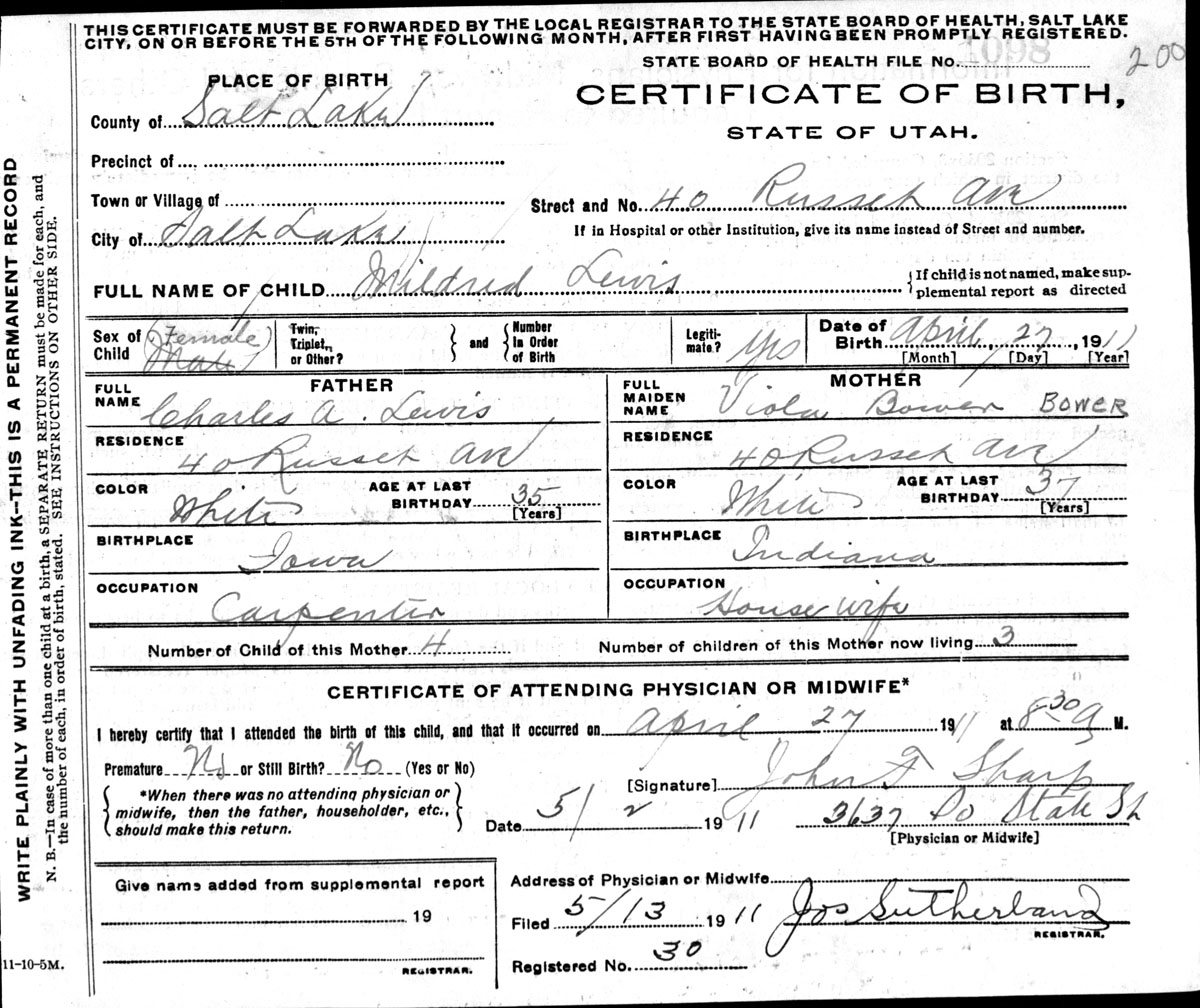 THIS CERTIFICATE MUST BE FORWARDED BY THE LOCAL REGISTRAR TO THE STATE BOARD OF HEALTH, SALT LAKE
CITY, ON OR BEFORE THE 5TH OF THE FOLLOWING MONTH, AFTER FIRST HAVING BEEN PROMPTLY REGISTERED.
STATE BOARD OF HEALTH FILE No. 200
PLACE OF BIRTH
CERTIFICATE OF BIRTH,
STATE OF UTAH.
County of Salt Lake
Precinct of
Town or Village of
Street and No. 40 Russet Ave
City of Salt Lake
If in Hospital or other Institution, give its name instead of Street and number.
FULL NAME OF CHILD Mildred Lewis
{If child is not named, make sup-
plemental report as directed
Sex of Child (Female) Male
Twin, Triplet, or Other? } and { Number In Order of Birth
Legiti-mate? Yes
Date of Birth April, 27, 1911
[Month] [Day] [Year]
FATHER
FULL NAME Charles A. Lewis
RESIDENCE 40 Russet Ave
COLOR White AGE AT LAST BIRTHDAY 35 [Years]
BIRTHPLACE Iowa
OCCUPATION Carpenter
MOTHER
FULL MAIDEN NAME Viola Bower BOWER
RESIDENCE 40 Russet Ave
COLOR White AGE AT LAST BIRTHDAY 37 [Years]
BIRTHPLACE Indiana
OCCUPATION House wife
Number of Child of this Mother 4 Number of children of this Mother now living 3
CERTIFICATE OF ATTENDING PHYSICIAN OR MIDWIFE*
I hereby certify that I attended the birth of this child, and that it occurred on April 27 1911 at 8 30 A M.
Premature No or Still Birth? No (Yes or No)
[Signature] John F Sharp
{*When there was no attending physician or
midwife, then the father, householder, etc.,
should make this return.}
Date 5/2 1911 3637 So State St
[Physician or Midwife]
Give name added from supplemental report
19
REGISTRAR.
Address of Physician or Midwife
Filed 5/13 1911 Jos Sutherland
REGISTRAR.
Registered No. 30
11-10-5M.
WRITE PLAINLY WITH UNFADING INK—THIS IS A PERMANENT RECORD
N. B.—In case of more than one child at a birth, a SEPARATE RETURN must be made for each, and
the number of each, in order of birth, stated. SEE INSTRUCTIONS ON OTHER SIDE.